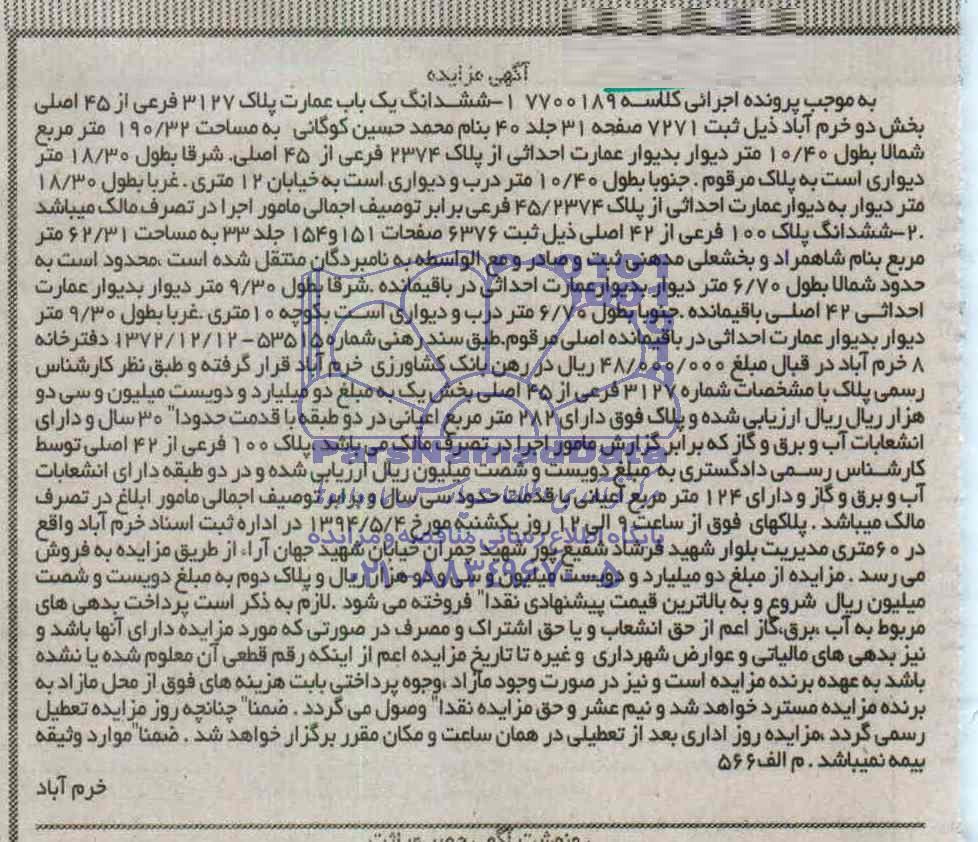 آگهی مزایده
به موجب پرونده اجرائی کلاسه ۷۷۰۰۱۸۹ ۱-ششدانگ یک باب عمارت پلاک ۳۱۲۷ فرعی از ۴۵ اصلی
بخش دو خرم آباد ذیل ثبت ۷۲۷۱ صفحه ۳۱ جلد ۴۰ بنام محمد حسین کوگانی به مساحت ۱۹۰/۳۲ متر مربع
شمالا بطول ۱۰/۴۰ متر دیوار بدیوار عمارت احداثی از پلاک ۲۳۷۴ فرعی از ۴۵ اصلی. شرقا بطول ۱۸/۳۰ متر
دیواری است به پلاک مرقوم . جنوبا بطول ۱۰/۴۰ متر درب و دیواری است به خیابان ۱۲ متری . غربا بطول ۱۸/۳۰
متر دیوار به دیوارعمارت احداثی از پلاک ۴۵/۲۳۷۴ فرعی برابر توصیف اجمالی مامور اجرا در تصرف مالک میباشد
.۲-ششدانگ پلاک ۱۰۰ فرعی از ۴۲ اصلی ذیل ثبت ۶۳۷۶ صفحات ۱۵۱و۱۵۴ جلد ۳۳ به مساحت ۶۲/۳۱ متر
مربع بنام شاهمراد و بخشعلی مدهنی ثبت و صادر و مع الواسطه به نامبردگان منتقل شده است ،محدود است به
حدود شمالا بطول ۶/۷۰ متر دیوار بدیوارعمارت احداثی در باقیمانده .شرقا بطول ۹/۳۰ متر دیوار بدیوار عمارت
احداثی ۴۲ اصلی باقیمانده .جنوبا بطول ۶/۷۰ متر درب و دیواری است بکوچه ۱۰متری .غربا بطول ۹/۳۰ متر
دیوار بدیوار عمارت احداثی در باقیمانده اصلی مرقوم.طبق سند رهنی شماره ۵۳۵۱۵-۱۳۷۲/۱۲/۱۲ دفترخانه
۸ خرم آباد در قبال مبلغ ۴۸/۰۰۰/۰۰۰ ریال در رهن بانک کشاورزی خرم آباد قرار گرفته و طبق نظر کارشناس
رسمی پلاک با مشخصات شماره ۳۱۲۷ فرعی از ۴۵ اصلی بخش یک به مبلغ دو میلیارد و دویست میلیون و سی دو
هزار ریال ریال ارزیابی شده و پلاک فوق دارای ۲۸۲ متر مربع اعیانی در دو طبقه با قدمت حدودا" ۳۰ سال و دارای
انشعابات آب و برق و گاز که برابر گزارش مامور اجرا در تصرف مالک می باشد .پلاک ۱۰۰ فرعی از ۴۲ اصلی توسط
کارشناس رسمی دادگستری به مبلغ دویست و شصت میلیون ریال ارزیابی شده و در دو طبقه دارای انشعابات
آب و برق و گاز و دارای ۱۲۴ متر مربع اعیانی با قدمت حدود سی سال و برابر توصیف اجمالی مامور ابلاغ در تصرف
مالک میباشد . پلاکهای فوق از ساعت ۹ الی ۱۲ روز یکشنبه مورخ ۱۳۹۴/۵/۴ در اداره ثبت اسناد خرم آباد واقع
در ۶۰متری مدیریت بلوار شهید فرشاد شفیع پور شهید چمران خیابان شهید جهان آراء از طریق مزایده به فروش
می رسد . مزایده از مبلغ دو میلیارد و دویست میلیون و سی و دو هزار ریال و پلاک دوم به مبلغ دویست و شصت
میلیون ریال شروع و به بالاترین قیمت پیشنهادی نقدا" فروخته می شود .لازم به ذکر است پرداخت بدهی های
مربوط به آب ،برق،گاز اعم از حق انشعاب و یا حق اشتراک و مصرف در صورتی که مورد مزایده دارای آنها باشد و
نیز بدهی های مالیاتی و عوارض شهرداری و غیره تا تاریخ مزایده اعم از اینکه رقم قطعی آن معلوم شده یا نشده
باشد به عهده برنده مزایده است و نیز در صورت وجود مازاد ،وجوه پرداختی بابت هزینه های فوق از محل مازاد به
برنده مزایده مسترد خواهد شد و نیم عشر و حق مزایده نقدا" وصول می گردد . ضمنا" چنانچه روز مزایده تعطیل
رسمی گردد ،مزایده روز اداری بعد از تعطیلی در همان ساعت و مکان مقرر برگزار خواهد شد . ضمنا"موارد وثیقه
بیمه نمیباشد . م الف۵۶۶
خرم آباد
ParsNamadData
پایگاه اطلاع رسانی مناقصه و مزایده
۰۲۱-۸۸۳۴۹۶۷۰-۵